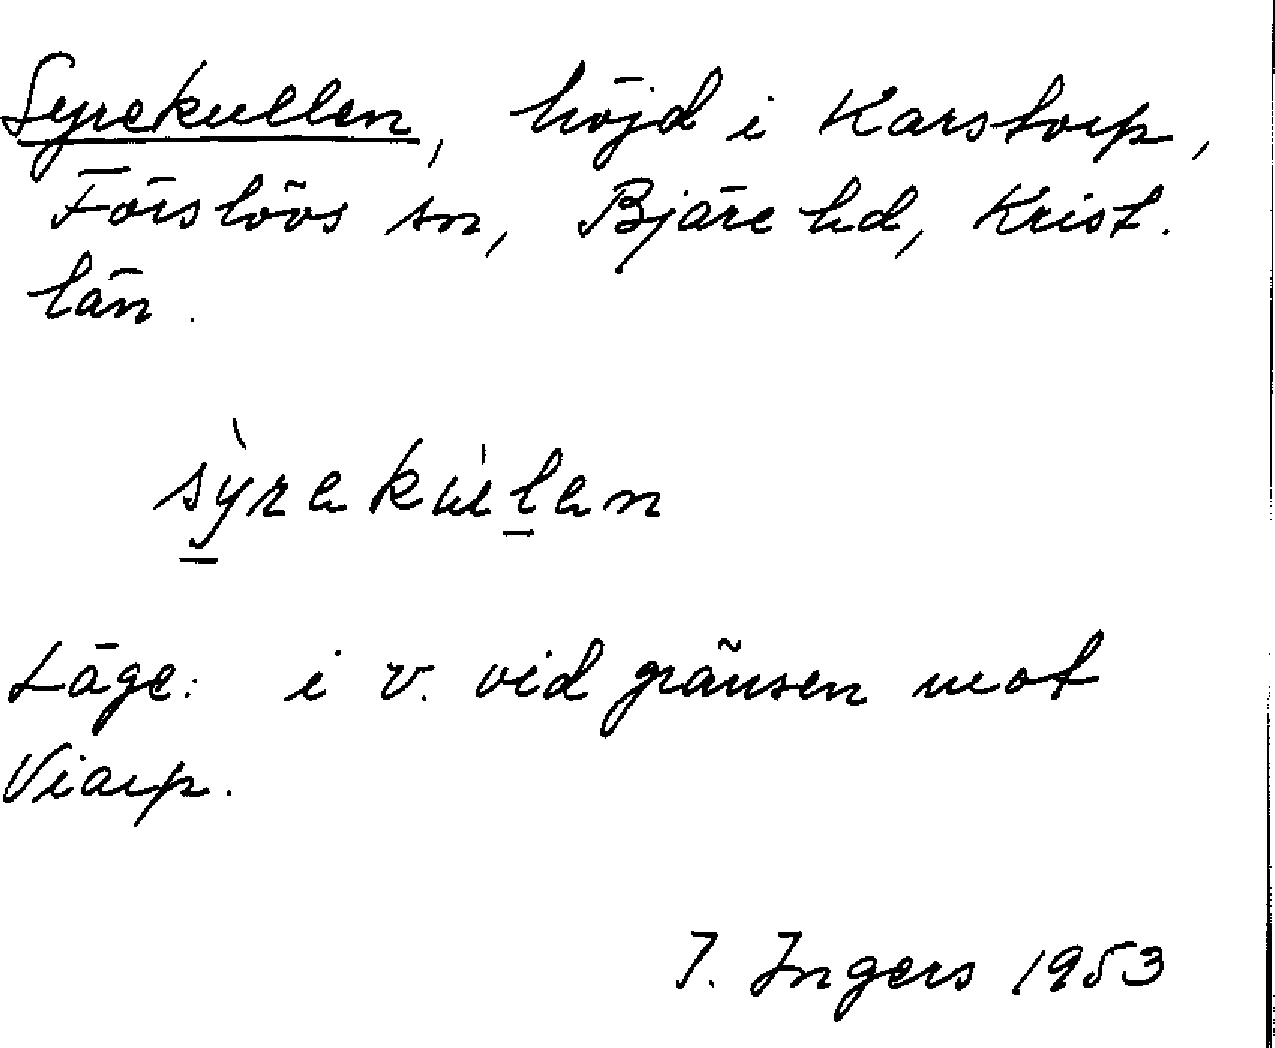 Syrekullen, höjd i Karstorp,
Förslövs sn, Bjäre hd, Krist.
län.
sỳrekúlen
Läge: i v. vid gränsen mot
Viarp.
I. Ingers 1953